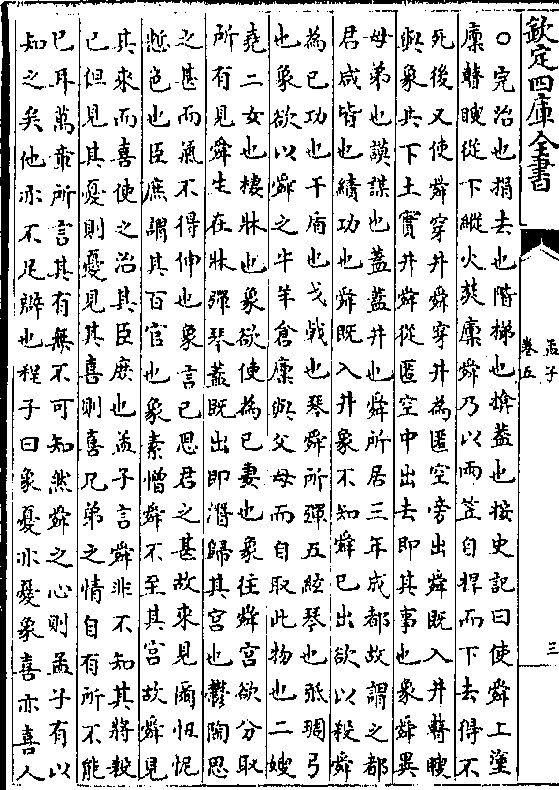 欽定四庫全書
孟子
卷五
三
○完治也捐去也階梯也揜葢也按史記曰使舜上塗
廩瞽瞍從下縱火焚廩舜乃以兩笠自捍而下去得不
死後又使舜穿井舜穿井為匿空旁出舜既入井瞽瞍
與象共下土實井舜從匿空中出去即其事也象舜異
母弟也謨謀也蓋蓋井也舜所居三年成都故謂之都
君咸皆也績功也舜既入井象不知舜已出欲以殺舜
為已功也干盾也戈戟也琴舜所彈五絃琴也弤琱弓
也象欲以舜之牛羊倉廩與父母而自取此物也二嫂
堯二女也棲牀也象欲使為已妻也象往舜宫欲分取
所有見舜生在牀彈琴蓋既出即潛歸其宫也鬱陶思
之甚而氣不得伸也象言已思君之甚故來見爾忸怩
慙色也臣庶謂其百官也象素憎舜不至其宫故舜見
其來而喜使之治其臣庶也孟子言舜非不知其將殺
已但見其憂則憂見其喜則喜兄弟之情自有所不能
已耳萬章所言其有無不可知然舜之心則孟子有以
知之矣他亦不足辯也程子曰象憂亦憂象喜亦喜人